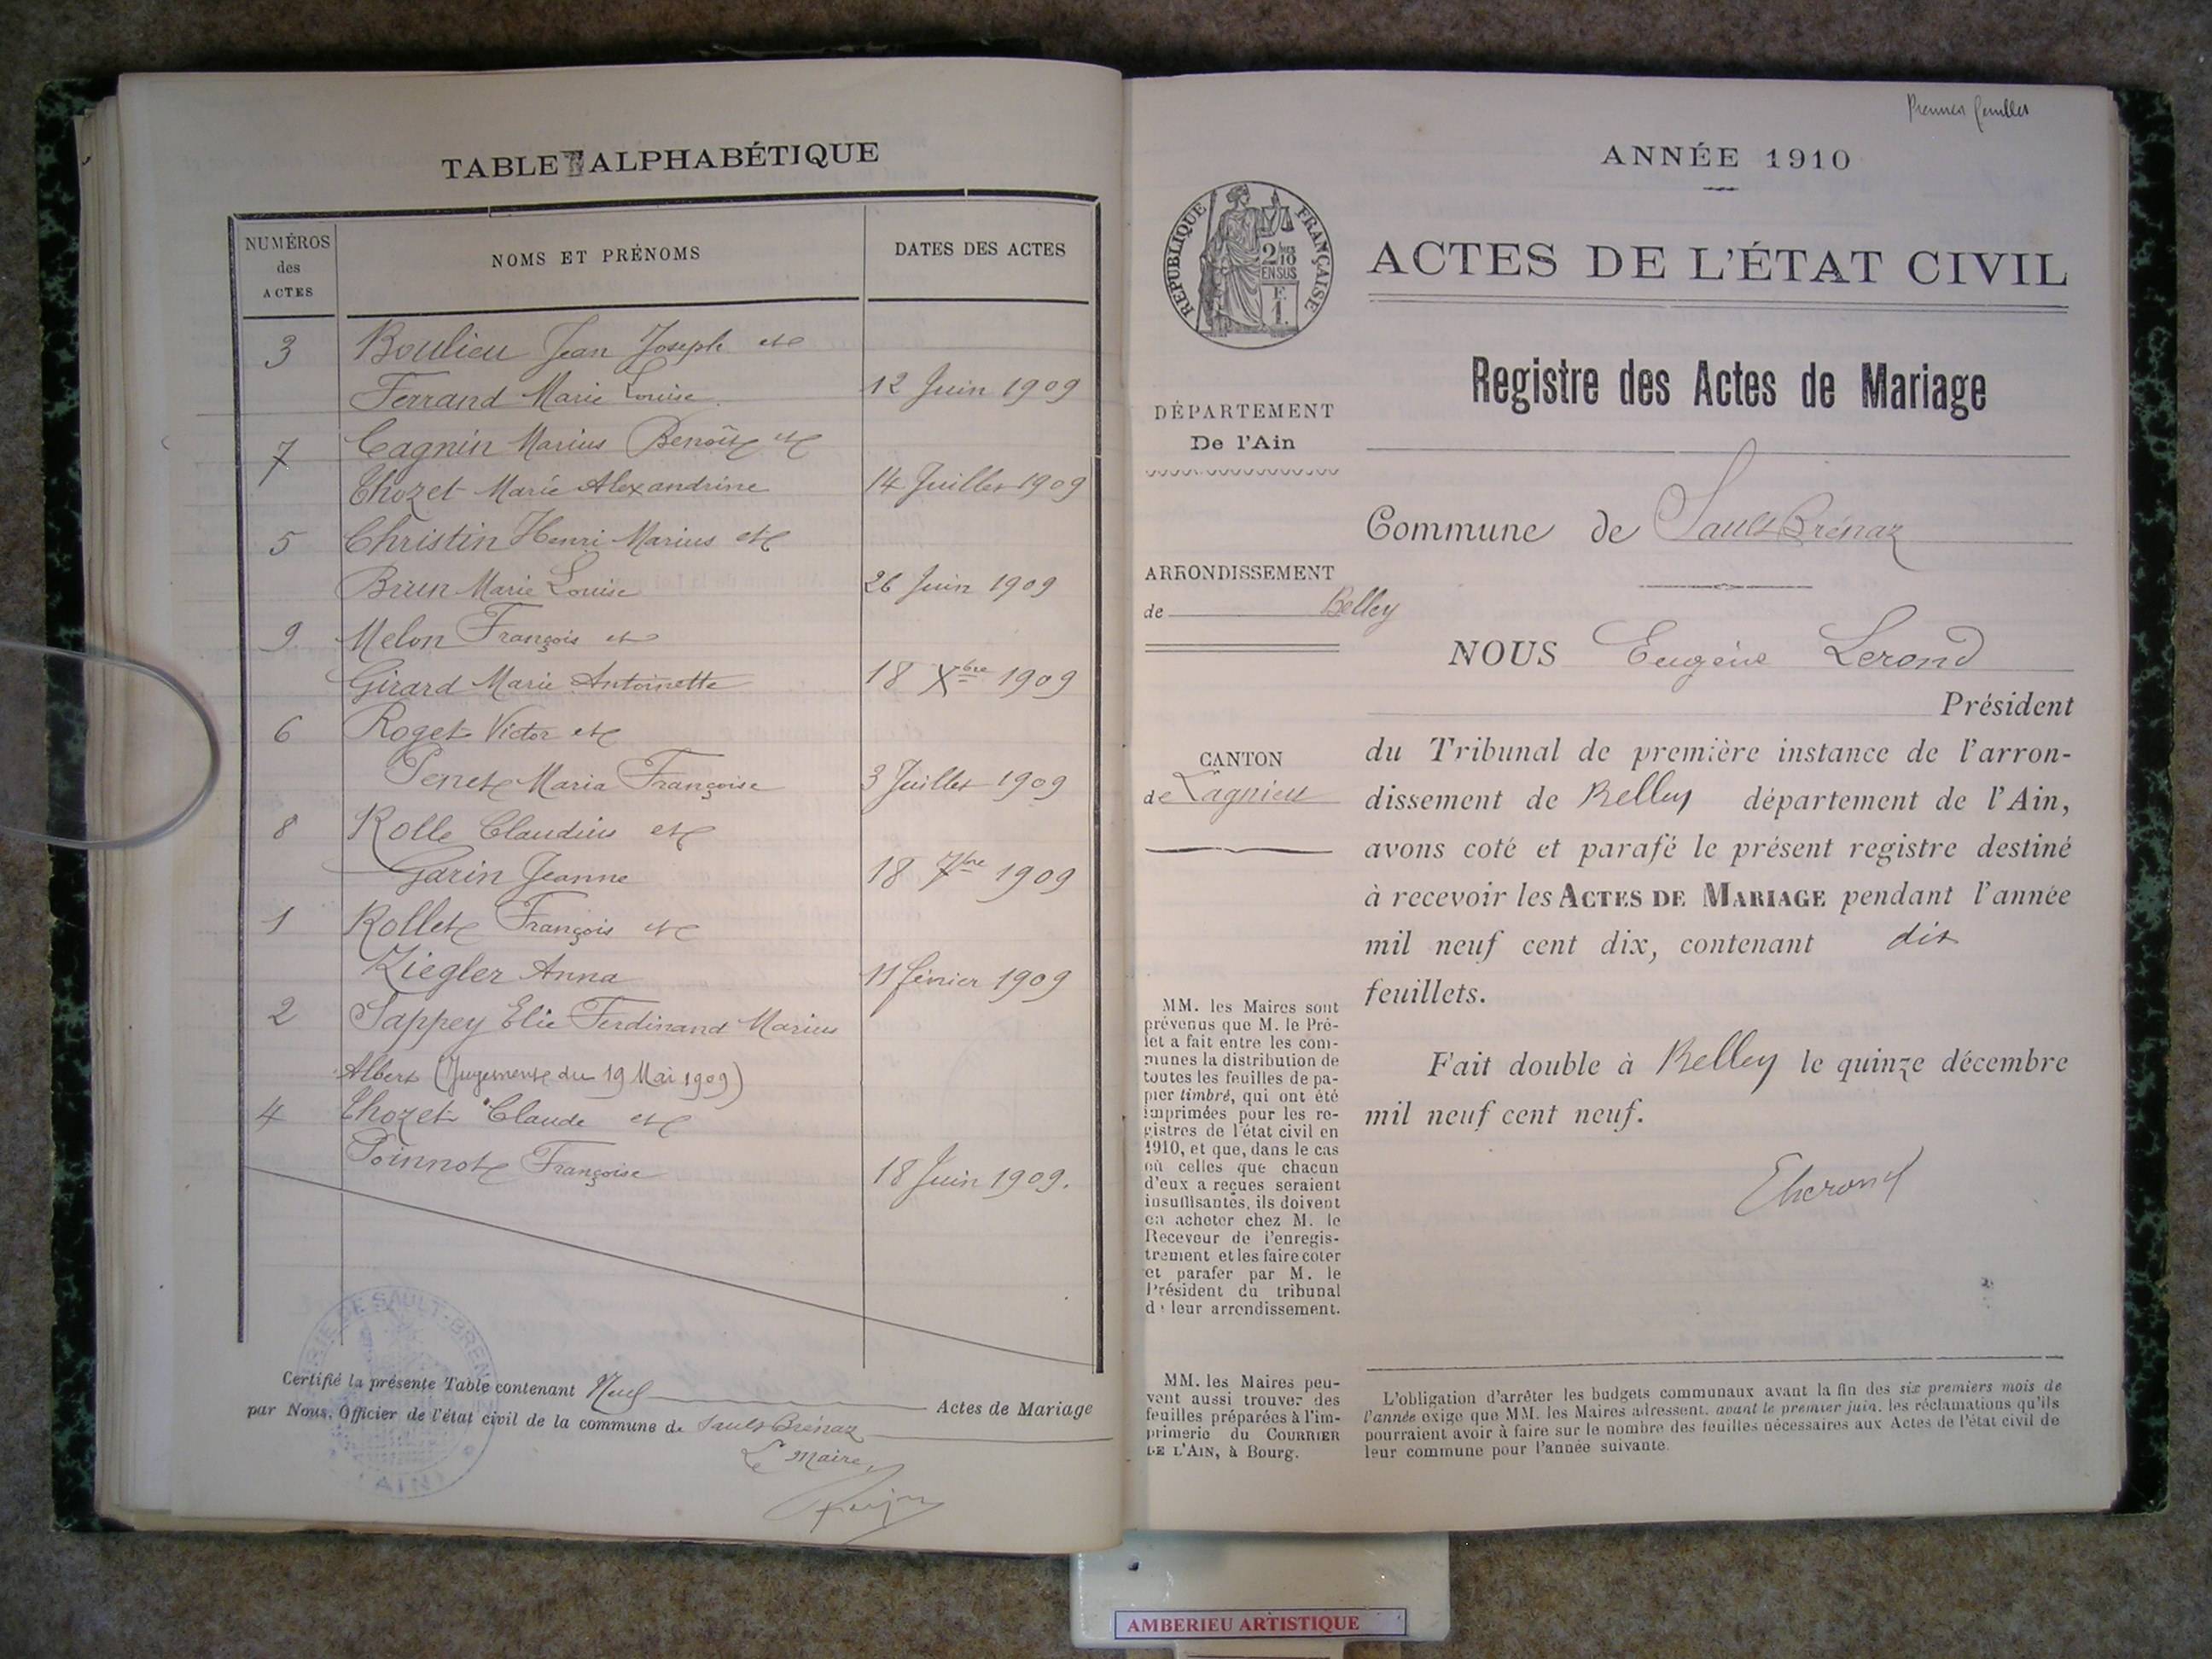 TABLE ALPHABÉTIQUE
NUMÉROS
des
ACTES
NOMS ET PRÉNOMS
DATES DES ACTES
3 Boulieu Jean Joseph et
Ferrand Marie Louise 12 Juin 1909
7 Cagnin Marius Benoît et
Thozet Marie Alexandrine 14 Juillet 1909
5 Christin Henri Marius et
Brun Marie Louise 26 Juin 1909
9 Melon François et
Girard Marie Antoinette 18 Xbre 1909
6 Roget Victor et
Penet Maria Françoise 3 Juillet 1909
8 Rolle Claudius et
Garin Jeanne 18 7bre 1909
1 Rollet François et
Ziegler Anna 11 février 1909
2 Sappey Elie Ferdinand Marius
Albert (Jugement du 19 Mai 1909)
4 Thozet Claude et
Poinnot Françoise 18 Juin 1909.
Certifié la présente Table contenant Neuf Actes de Mariage
par Nous, Officier de l'état civil de la commune de Sault Brénaz
Le Maire,
MAIRIE DE SAULT-BRENAZ
(AIN)
Premier feuillet
ANNÉE 1910
RÉPUBLIQUE FRANÇAISE
2/10
EN SUS
F.
1.
ACTES DE L'ÉTAT CIVIL
Registre des Actes de Mariage
DÉPARTEMENT
De l'Ain
ARRONDISSEMENT
de Belley
CANTON
de Lagnieu
MM. les Maires sont
prévenus que M. le Pré-
fet a fait entre les com-
munes la distribution de
toutes les feuilles de pa-
pier timbré, qui ont été
imprimées pour les re-
gistres de l'état civil en
1910, et que, dans le cas
où celles que chacun
d'eux a reçues seraient
insuffisantes, ils doivent
en acheter chez M. le
Receveur de l'enregis-
trement et les faire coter
et parafer par M. le
Président du tribunal
de leur arrondissement.
MM. les Maires peu-
vent aussi trouver des
feuilles préparées à l'im-
primerie du COURRIER
DE L'AIN, à Bourg.
Commune de Sault Brénaz
NOUS Eugène Lerond
Président
du Tribunal de première instance de l'arron-
dissement de Belley département de l'Ain,
avons coté et parafé le présent registre destiné
à recevoir les ACTES DE MARIAGE pendant l'année
mil neuf cent dix, contenant dix
feuillets.
Fait double à Belley le quinze décembre
mil neuf cent neuf.
L'obligation d'arrêter les budgets communaux avant la fin des six premiers mois de
l'année exige que MM. les Maires adressent, avant le premier juin, les réclamations qu'ils
pourraient avoir à faire sur le nombre des feuilles nécessaires aux Actes de l'état civil de
leur commune pour l'année suivante.
AMBERIEU ARTISTIQUE